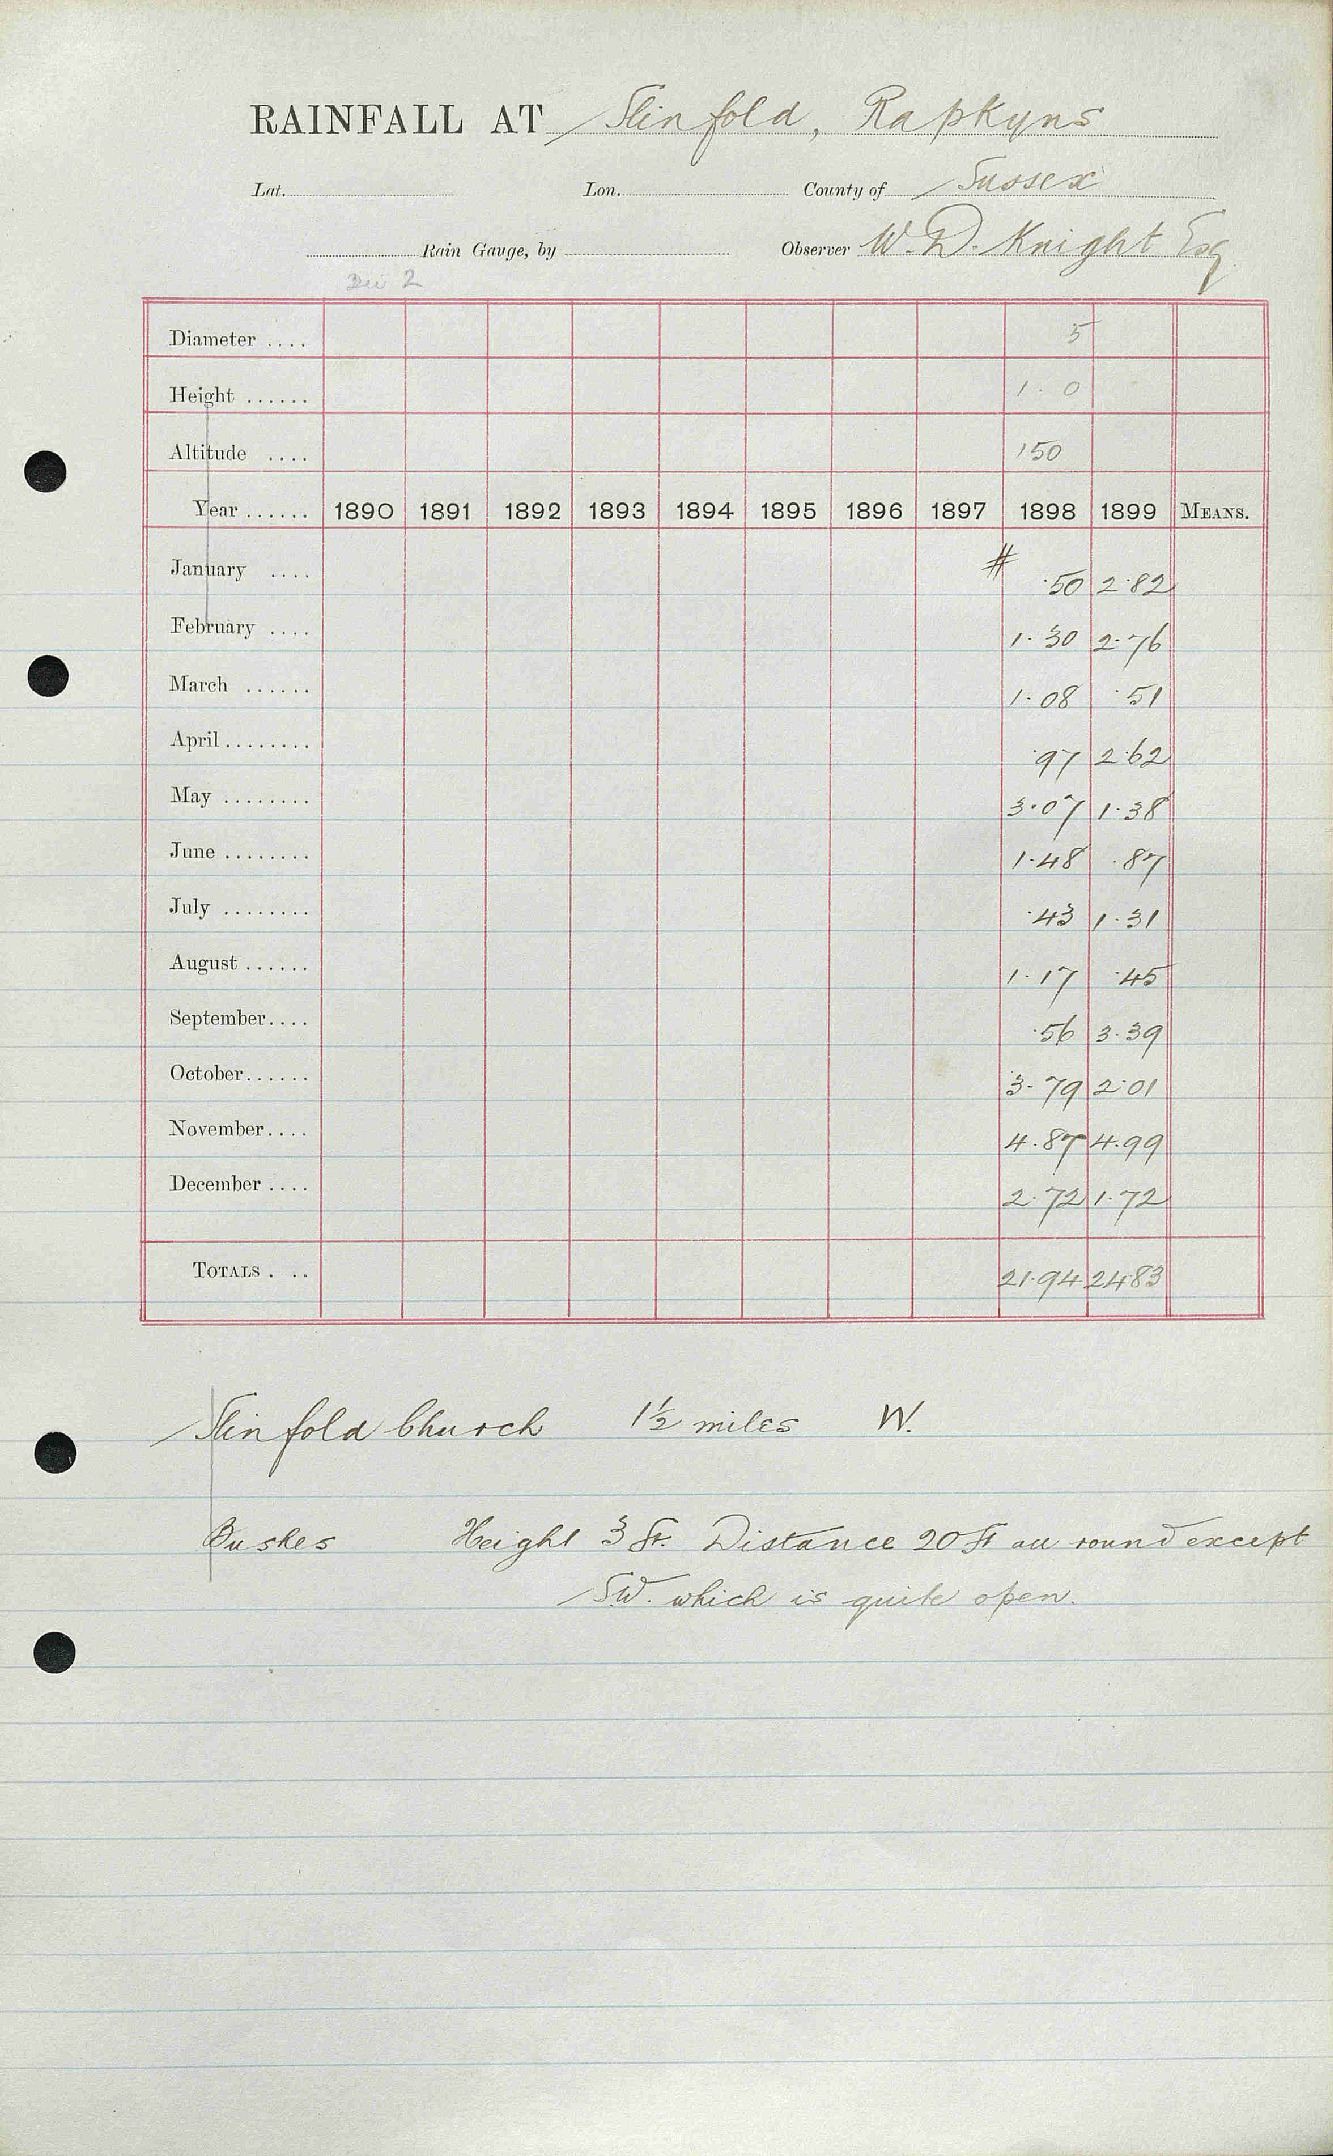 RAINFALL AT Slinfold, Rapkyns
Lat. Lon. County of Sussex
Rain Gauge, by Observer W. D. Knight Esq
2
Diameter .... 5
Height ...... 1. 0
Altitude .... 150
Year ...... 1890 1891 1892 1893 1894 1895 1896 1897 1898 1899 MEANS.
January .... # .50 2.82
February .... 1.30 2.76
March ...... 1.08 .51
April ........ .97 2.62
May ........ 3.07 1.38
June ........ 1.48 .87
July ........ .43 1.31
August ...... 1.17 .45
September.... .56 3.39
October...... 3.79 2.01
November.... 4.87 4.99
December .... 2.72 1.72
TOTALS . .. 21.94 24.83
Slinfold Church 1½ miles W.
Bushes Height 3 ft. Distance 20 ft all round except
SW. which is quite open.